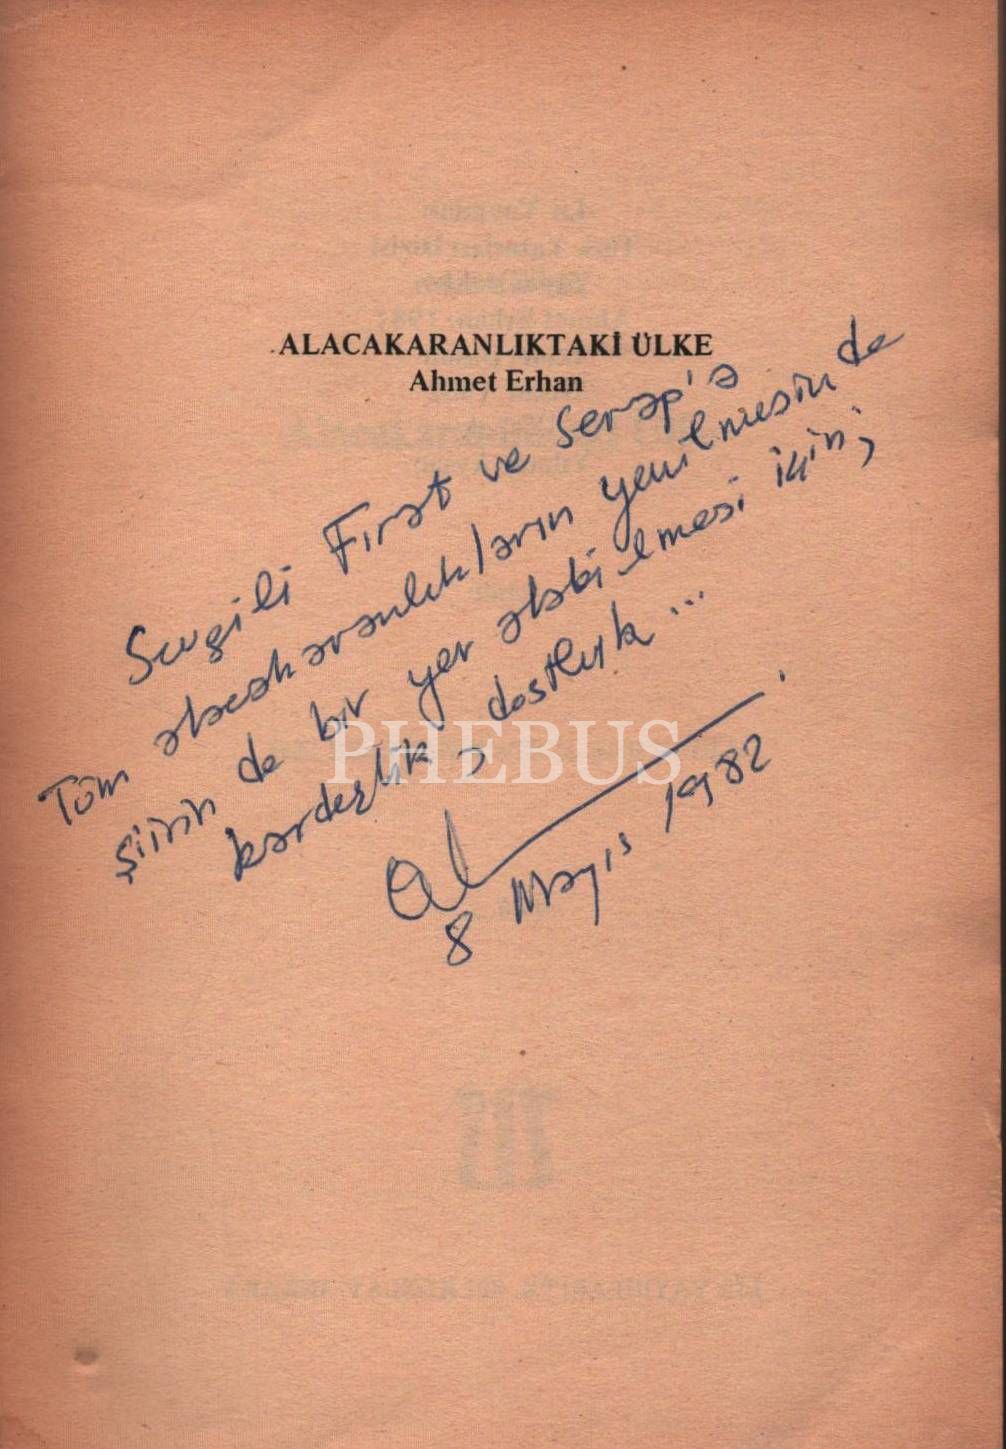 ALACAKARANLIKTAKİ ÜLKE
Ahmet Erhan
Sevgili Fırat ve Serap'a
Tüm alacakaranlıkların yenilmesinde
şiirin de bir yer alabilmesi için;
kardeşlik, dostluk...
8 Mayıs 1982
PHEBUS